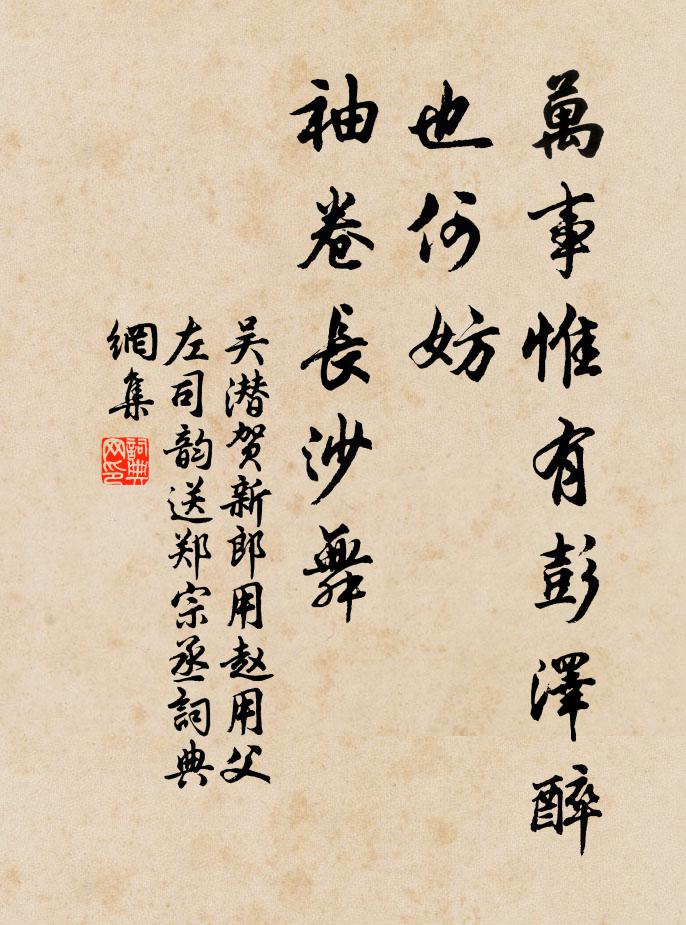 萬事惟有彭澤醉
也何妨
袖卷長沙舞
吴潜贺新郎用赵用父
左司韵送郑宗丞詞典
網集
詞典
网印